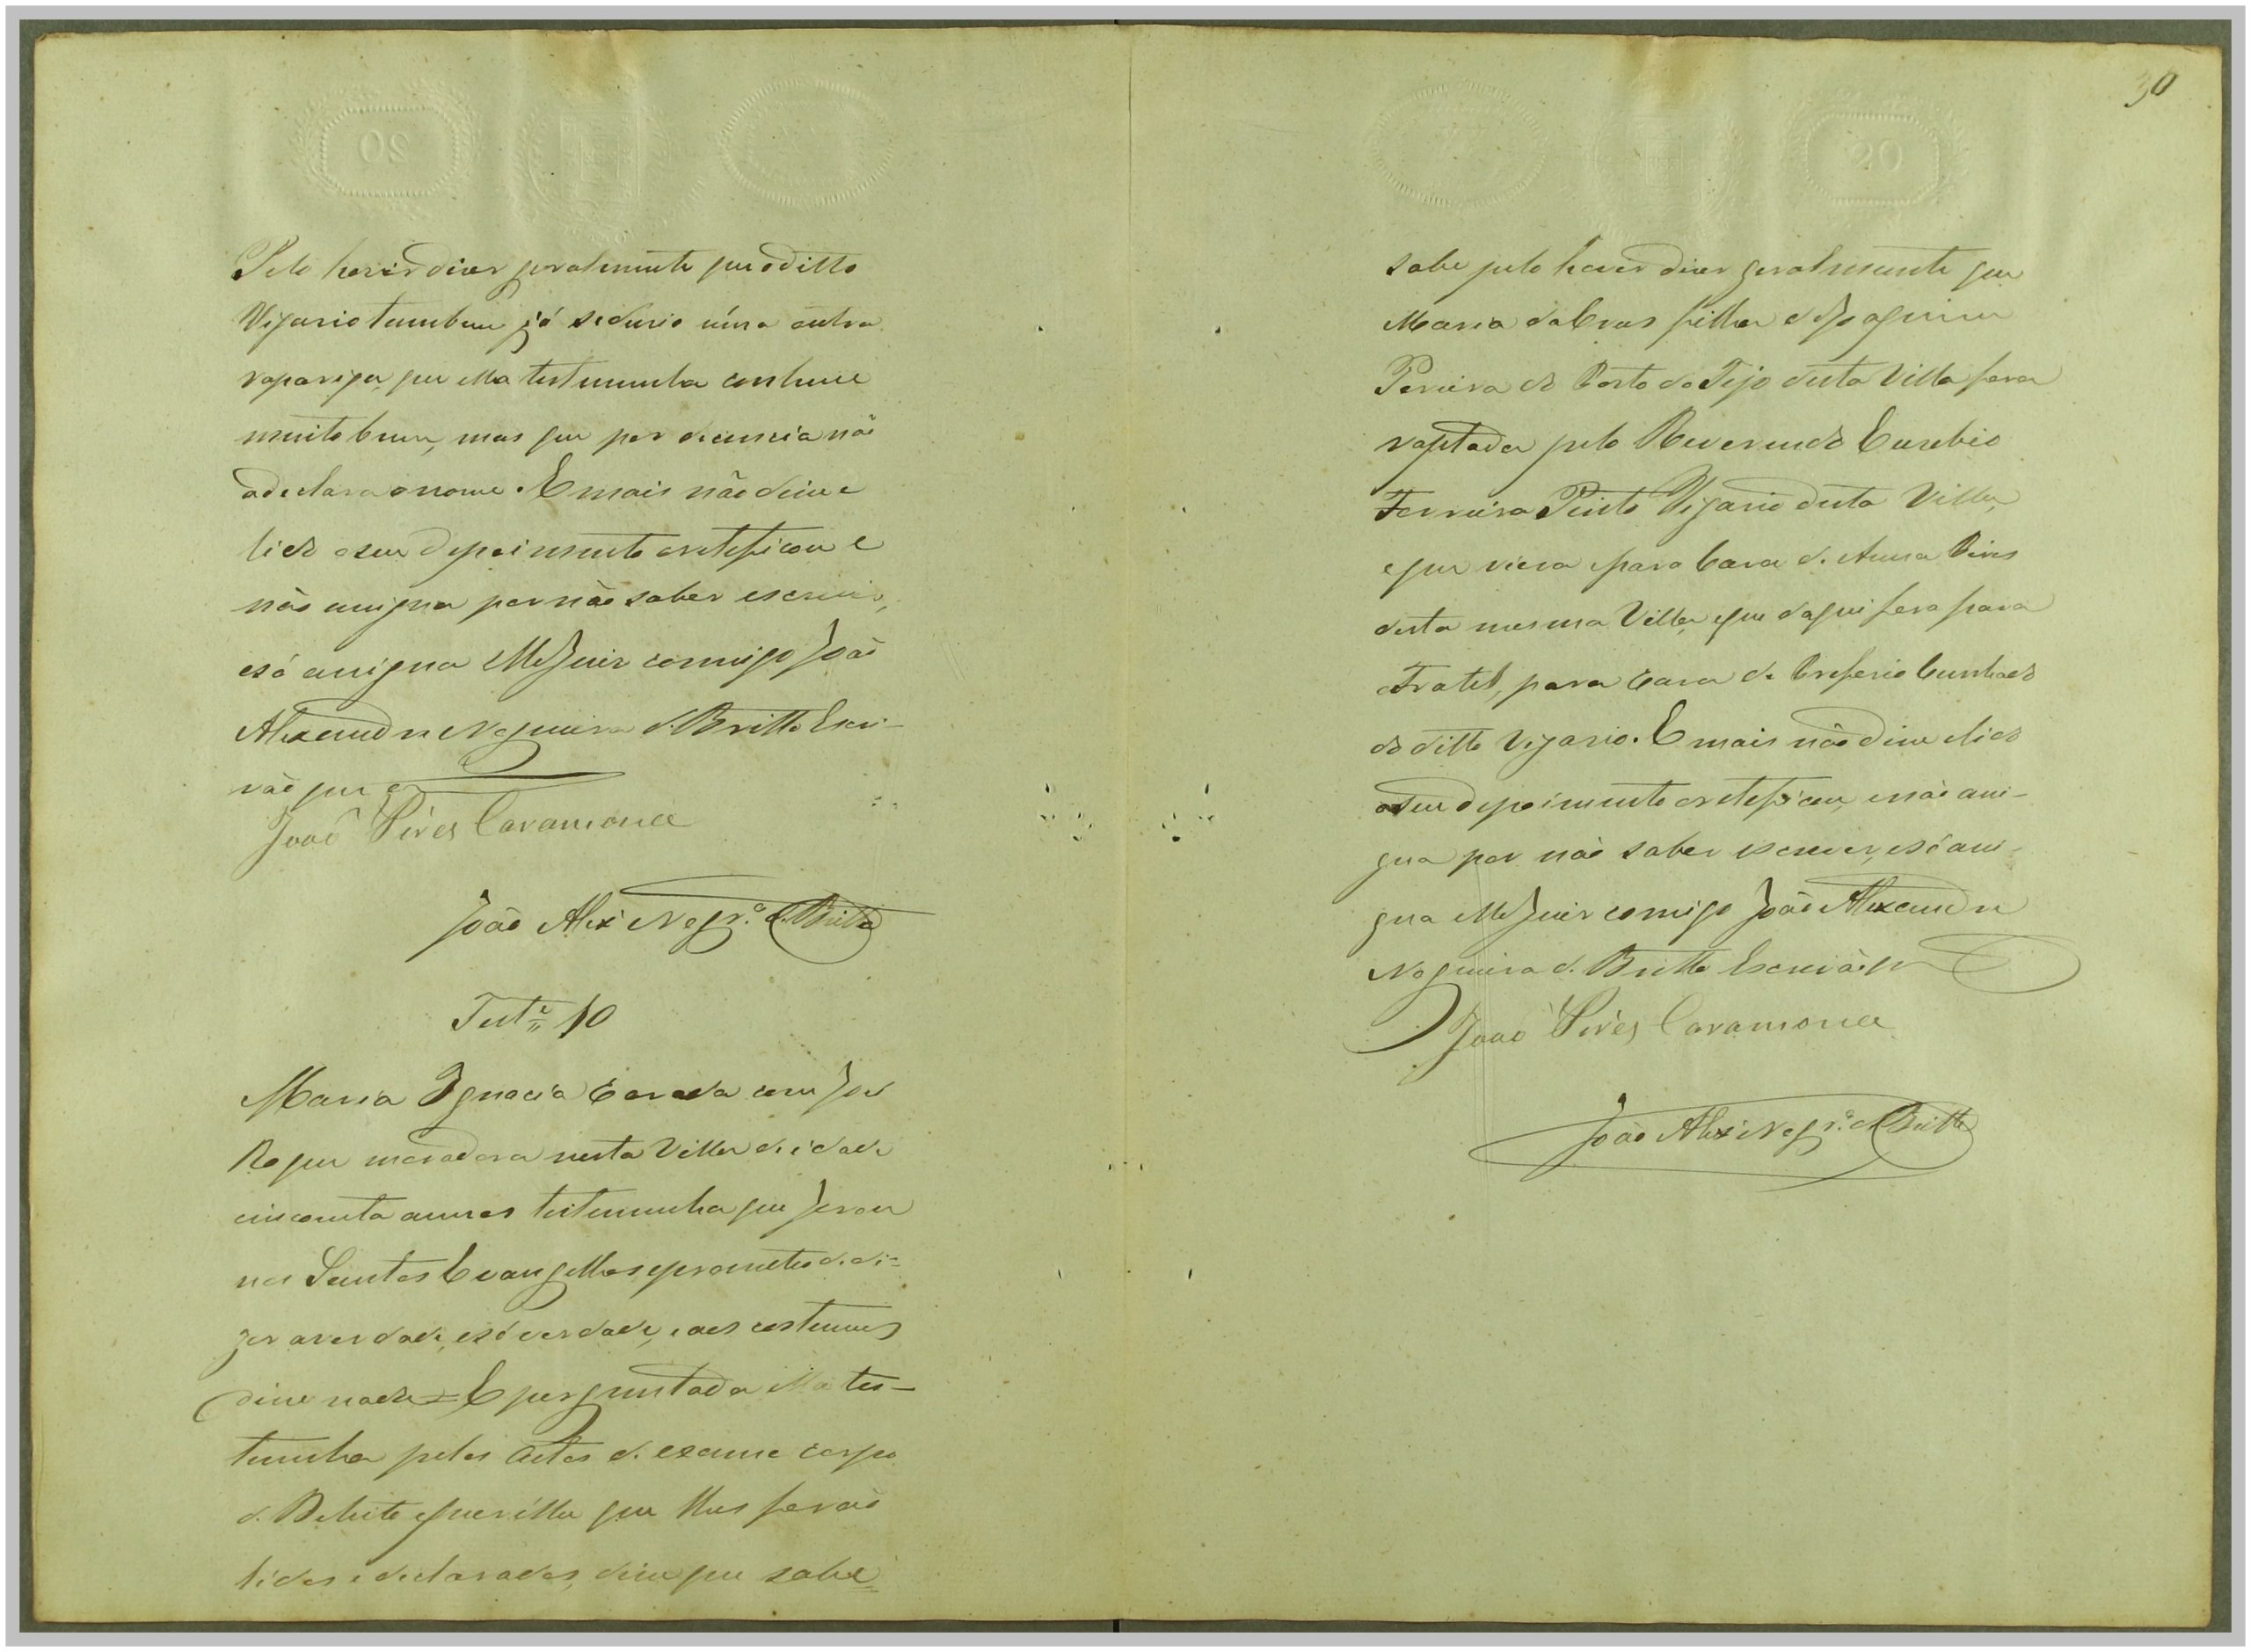 20
Pelo haver dizer geralmente que o ditto
Vigario tambem já sedusio uma outra
rapariga, que ella testemunha conhece
muito bem, mas que por decencia não
a declara o nome. E mais não disse e
lido o seu depoimento o reteficou e
não assigna por não saber escrever,
e só assigna elle Juiz commigo João
Alexandre Nogueira de Britto Escri-
vão que
João Pires Caramona
João Alex.e Nogr.a de Britto
Test.a 10
Maria Ignacia Casada com José
Roque moradora nesta Villa de idade
cincoenta annos testemunha que Jurou
nos Santos Evangelhos e prometeo de di=
zer a verdade, e só verdade, e aos costumes
disse nada = E perguntada ella tes-
temunha pelos Autos de exame corpo
de Delicto e querella que lhes forão
lidos e declarados, disse que sabe=
30
20
sabe pelo haver dizer geralmente que
Maria da Cruz filha de Joaquim
Pereira do Porto do Tejo desta Villa fora
raptada pelo Reverendo Euzebio
Ferreira Pinto Vigario desta Villa,
e que viera para Caza de Anna Pires
desta mesma Villa, e que daqui fora para
o Fratel, para caza de Onoferio Cunhado
do ditto Vigario. E mais não disse e lido
o seu depoimento o retefecou, e não assi-
gna por não saber escrever, e só assi-
gna elle Juiz comigo João Alexandre
Nogueira de Britto Escrivão que
João Pires Caramona
João Alex.e Nogr.a de Britto